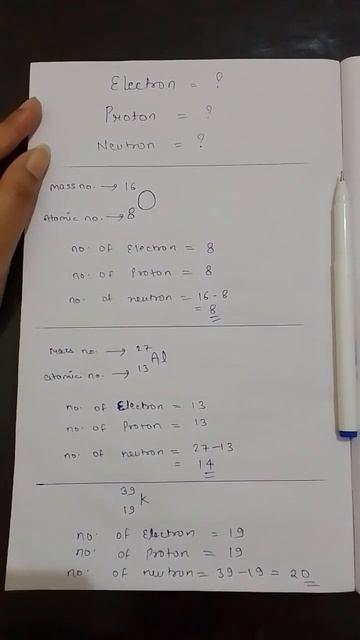 Electron = ?
Proton = ?
Neutron = ?
Mass no. → 16
O
Atomic no. → 8
no. of Electron = 8
no. of Proton = 8
no. of neutron = 16 - 8
= 8
Mass no. → 27
Al
Atomic no. → 13
no. of Electron = 13
no. of Proton = 13
no. of neutron = 27-13
= 14
39
K
19
no. of Electron = 19
no. of Proton = 19
no. of neutron = 39-19 = 20